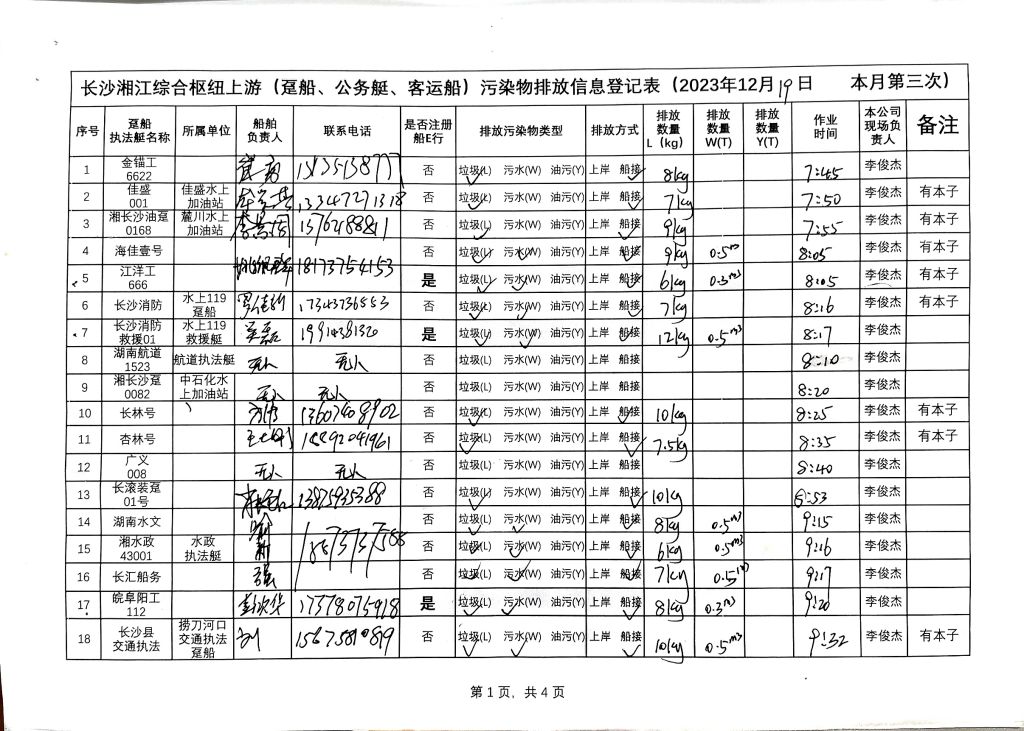 长沙湘江综合枢纽上游（趸船、公务艇、客运船）污染物排放信息登记表（2023年12月19日 本月第三次）
序号 趸船执法艇名称 所属单位 船舶负责人 联系电话 是否注册船E行 排放污染物类型 排放方式 排放数量L（kg） 排放数量W(T) 排放数量Y(T) 作业时间 本公司现场负责人 备注
1 金锚工6622 否 垃圾(L) 污水(W) 油污(Y) 上岸 船接 8kg 7:45 李俊杰
2 佳盛001 佳盛水上加油站 13347271318 否 垃圾(L) 污水(W) 油污(Y) 上岸 船接 7kg 7:50 李俊杰 有本子
3 湘长沙油趸0168 麓川水上加油站 否 垃圾(L) 污水(W) 油污(Y) 上岸 船接 9kg 7:55 李俊杰 有本子
4 海佳壹号 18173754153 否 垃圾(L) 污水(W) 油污(Y) 上岸 船接 9kg 0.5m 8:05 李俊杰 有本子
5 江洋工666 是 垃圾(L) 污水(W) 油污(Y) 上岸 船接 6kg 0.3m3 8:05 李俊杰 有本子
6 长沙消防 水上119趸船 17343736553 否 垃圾(L) 污水(W) 油污(Y) 上岸 船接 7kg 8:16 李俊杰 有本子
7 长沙消防救援01 水上119救援艇 是 垃圾(L) 污水(W) 油污(Y) 上岸 船接 12kg 0.5m3 8:17 李俊杰
8 湖南航道1523 航道执法艇 无人 无人 否 垃圾(L) 污水(W) 油污(Y) 上岸 船接 8:10 李俊杰
9 湘长沙趸0082 中石化水上加油站 无人 无人 否 垃圾(L) 污水(W) 油污(Y) 上岸 船接 8:20 李俊杰
10 长林号 13607408902 否 垃圾(L) 污水(W) 油污(Y) 上岸 船接 10kg 8:25 李俊杰 有本子
11 杏林号 否 垃圾(L) 污水(W) 油污(Y) 上岸 船接 7.5kg 8:35 李俊杰 有本子
12 广义008 无人 无人 否 垃圾(L) 污水(W) 油污(Y) 上岸 船接 8:40 李俊杰
13 长滚装趸01号 13875935388 否 垃圾(L) 污水(W) 油污(Y) 上岸 船接 10kg 8:53 李俊杰
14 湖南水文 否 垃圾(L) 污水(W) 油污(Y) 上岸 船接 8kg 0.5m3 9:15 李俊杰
15 湘水政43001 水政执法艇 否 垃圾(L) 污水(W) 油污(Y) 上岸 船接 6kg 0.5m3 9:16 李俊杰
16 长汇船务 否 垃圾(L) 污水(W) 油污(Y) 上岸 船接 7kg 9:17 李俊杰
17 皖阜阳工112 17378075918 是 垃圾(L) 污水(W) 油污(Y) 上岸 船接 8kg 9:20 李俊杰
18 长沙县交通执法 捞刀河口交通执法趸船 否 垃圾(L) 污水(W) 油污(Y) 上岸 船接 10kg 0.5m3 9:32 李俊杰 有本子
第 1 页，共 4 页